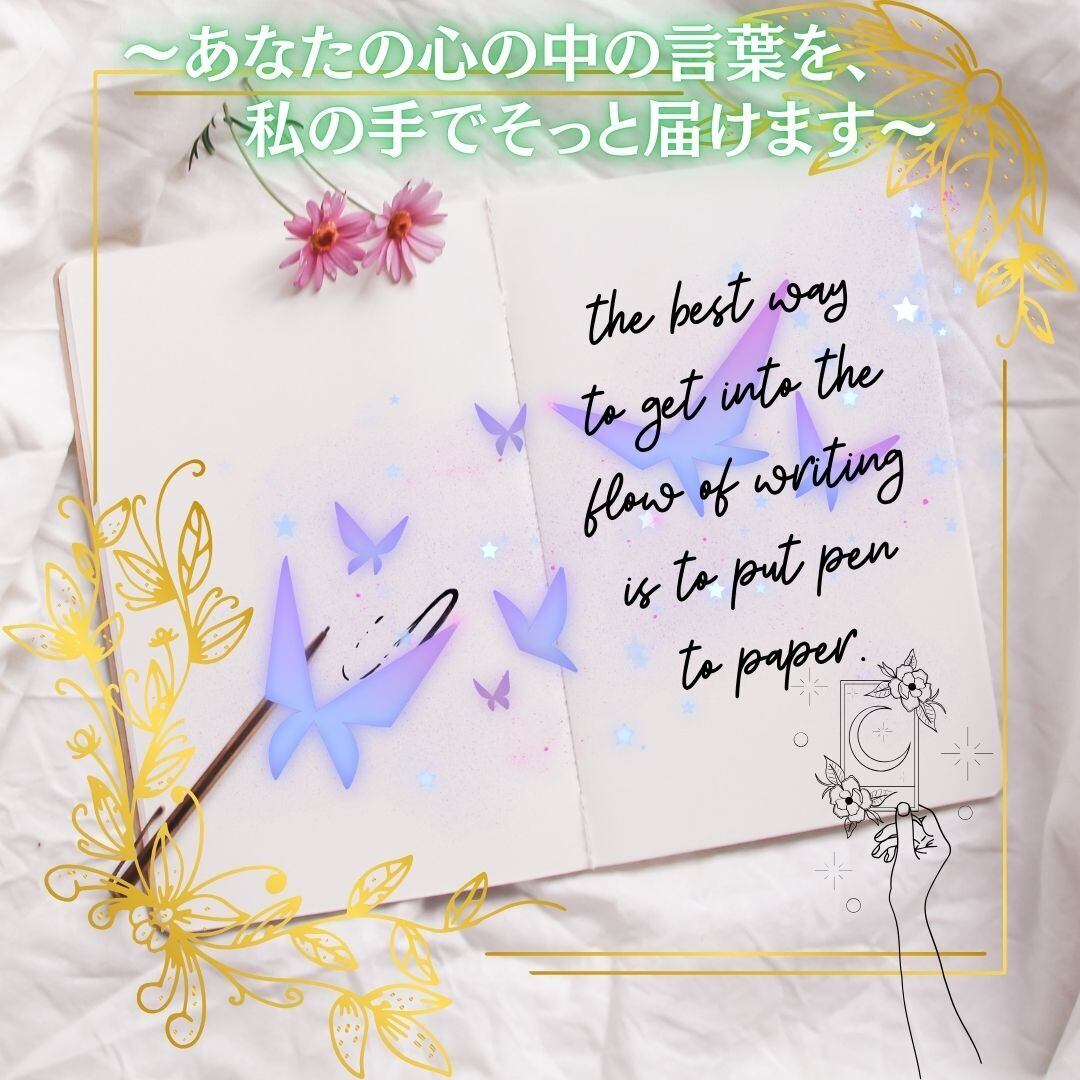 ～あなたの心の中の言葉を、
私の手でそっと届けます～
the best way
to get into the
flow of writing
is to put pen
to paper.